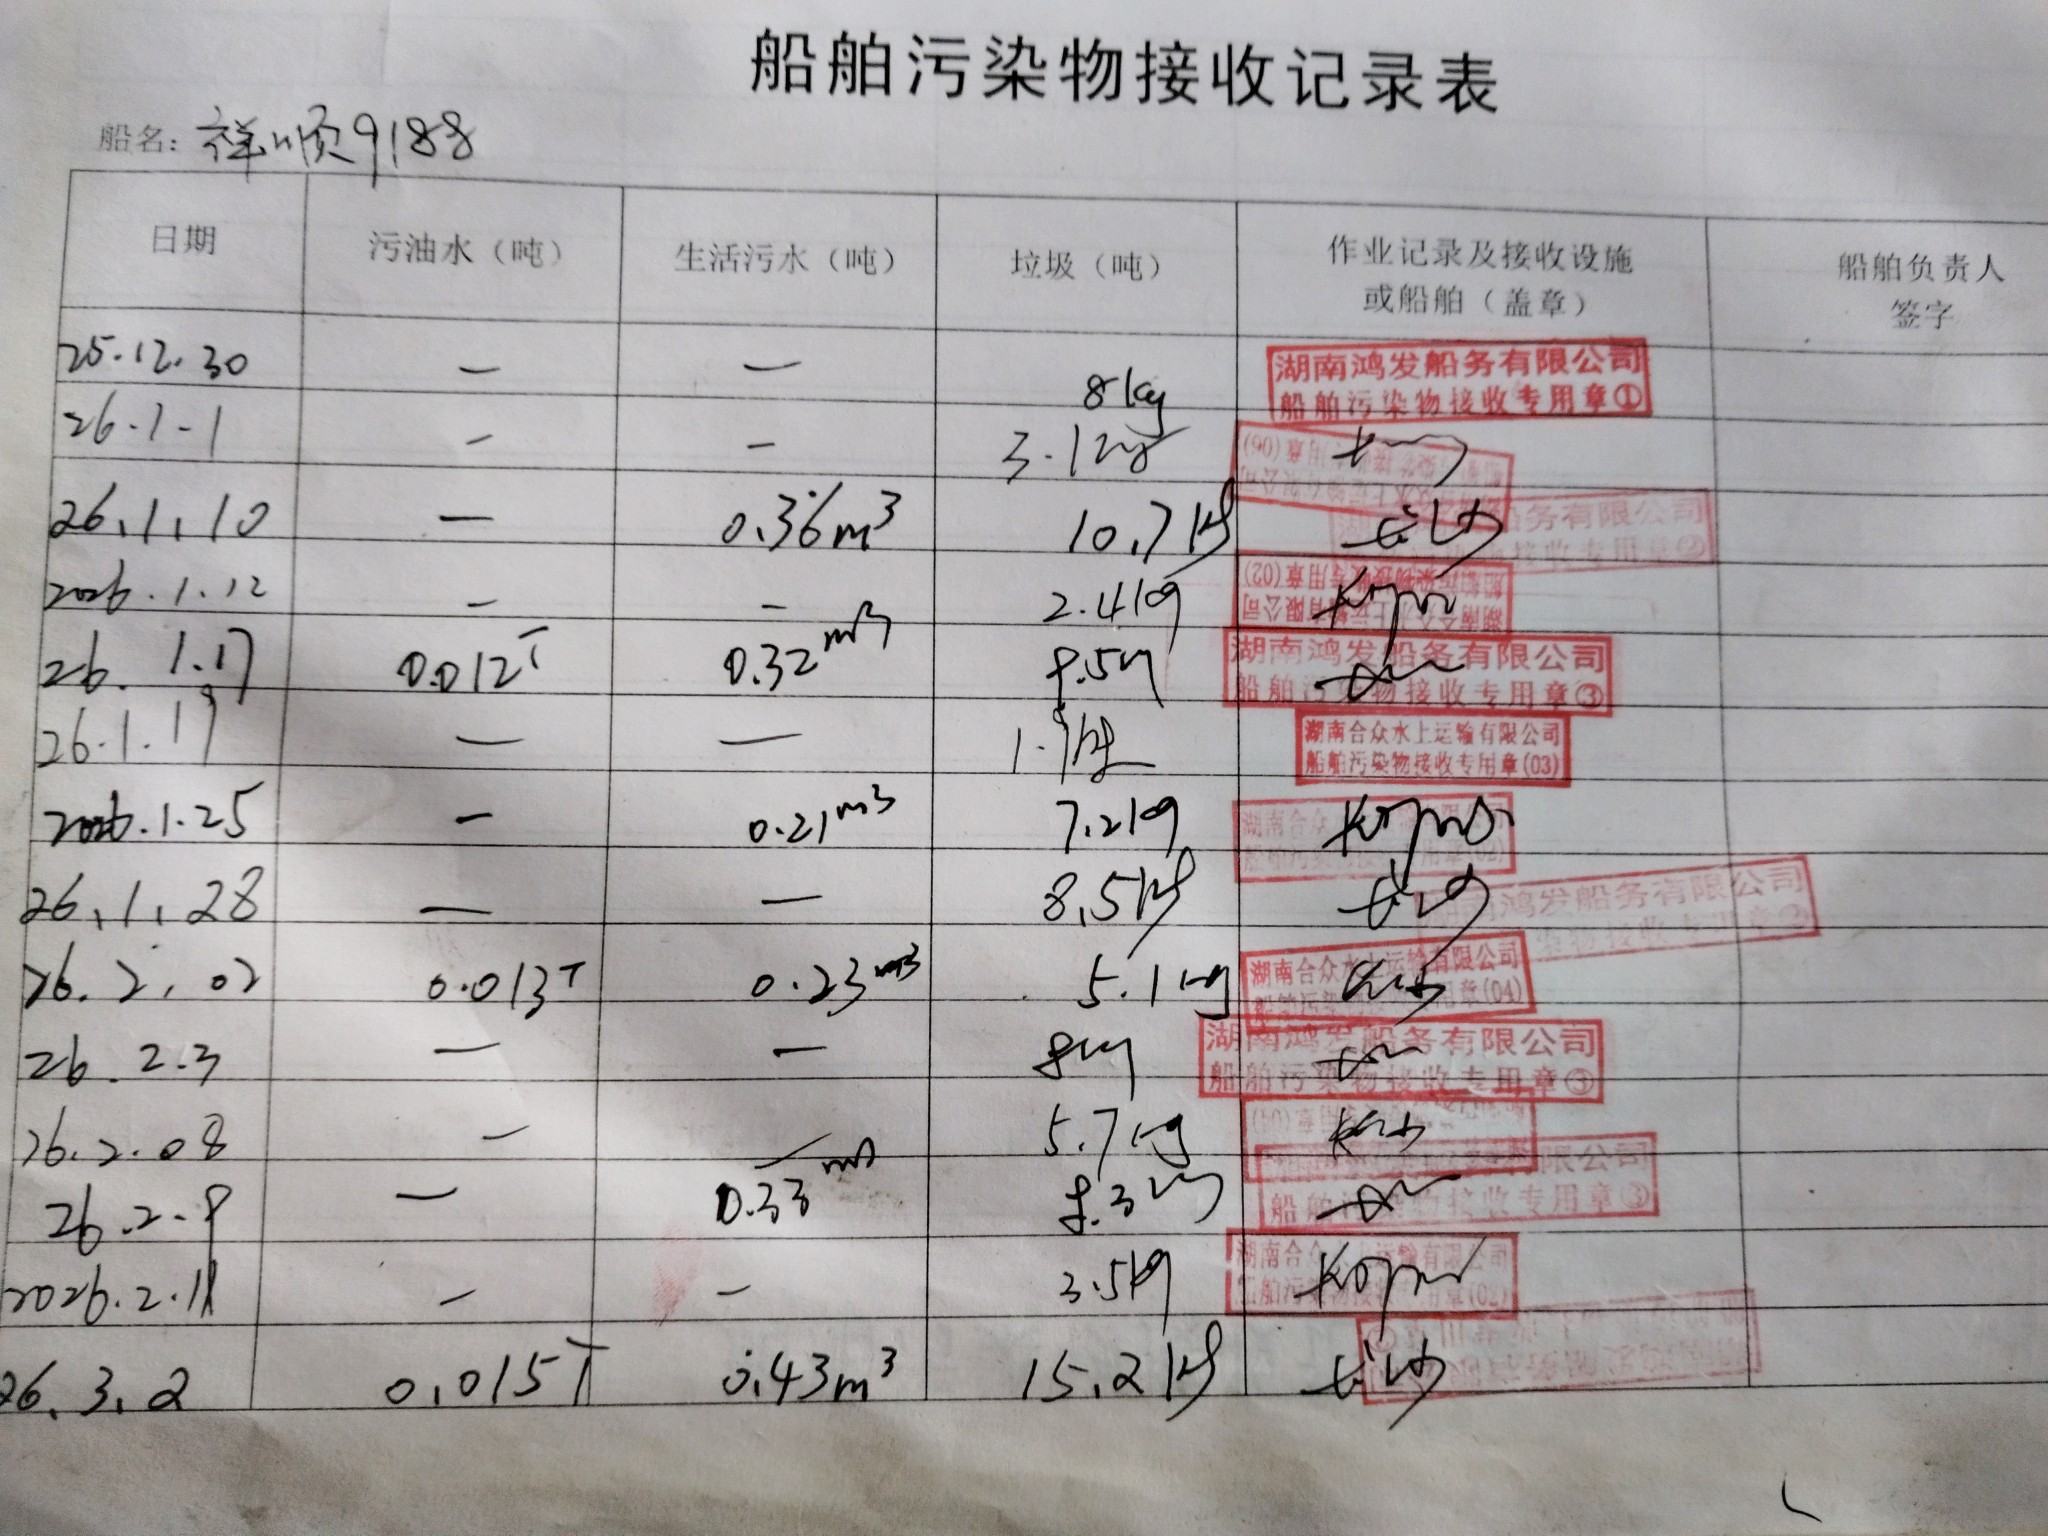 船舶污染物接收记录表
船名：祥顺9188
日期 污油水（吨） 生活污水（吨） 垃圾（吨） 作业记录及接收设施或船舶（盖章） 船舶负责人签字
25.12.30 — — 8kg 湖南鸿发船务有限公司 船舶污染物接收专用章①
26.1.1 — — 3.1kg
26.1.10 — 0.36m³ 10.7kg 长沙
2026.1.12 — — 2.4kg
26.1.17 0.012T 0.32m³ 9.5kg 湖南鸿发船务有限公司 船舶污染物接收专用章③
26.1.19 — — 1.9kg 湖南合众水上运输有限公司 船舶污染物接收专用章(03)
2026.1.25 — 0.21m³ 7.2kg 湖南合众
26.1.28 — — 8.5kg 长沙 鸿发船务有限公司
26.2.02 0.013T 0.23m³ 5.1kg 湖南合众水上运输有限公司 船舶污染物接收专用章(04)
26.2.3 — — 8kg 湖南鸿发船务有限公司 船舶污染物接收专用章③
26.2.08 — — 5.7kg
26.2.9 — 0.33m³ 9.3kg 限公司 船舶污染物接收专用章③
2026.2.11 — — 3.5kg 湖南合众水上运输有限公司
26.3.2 0.015T 0.43m³ 15.2kg 长沙